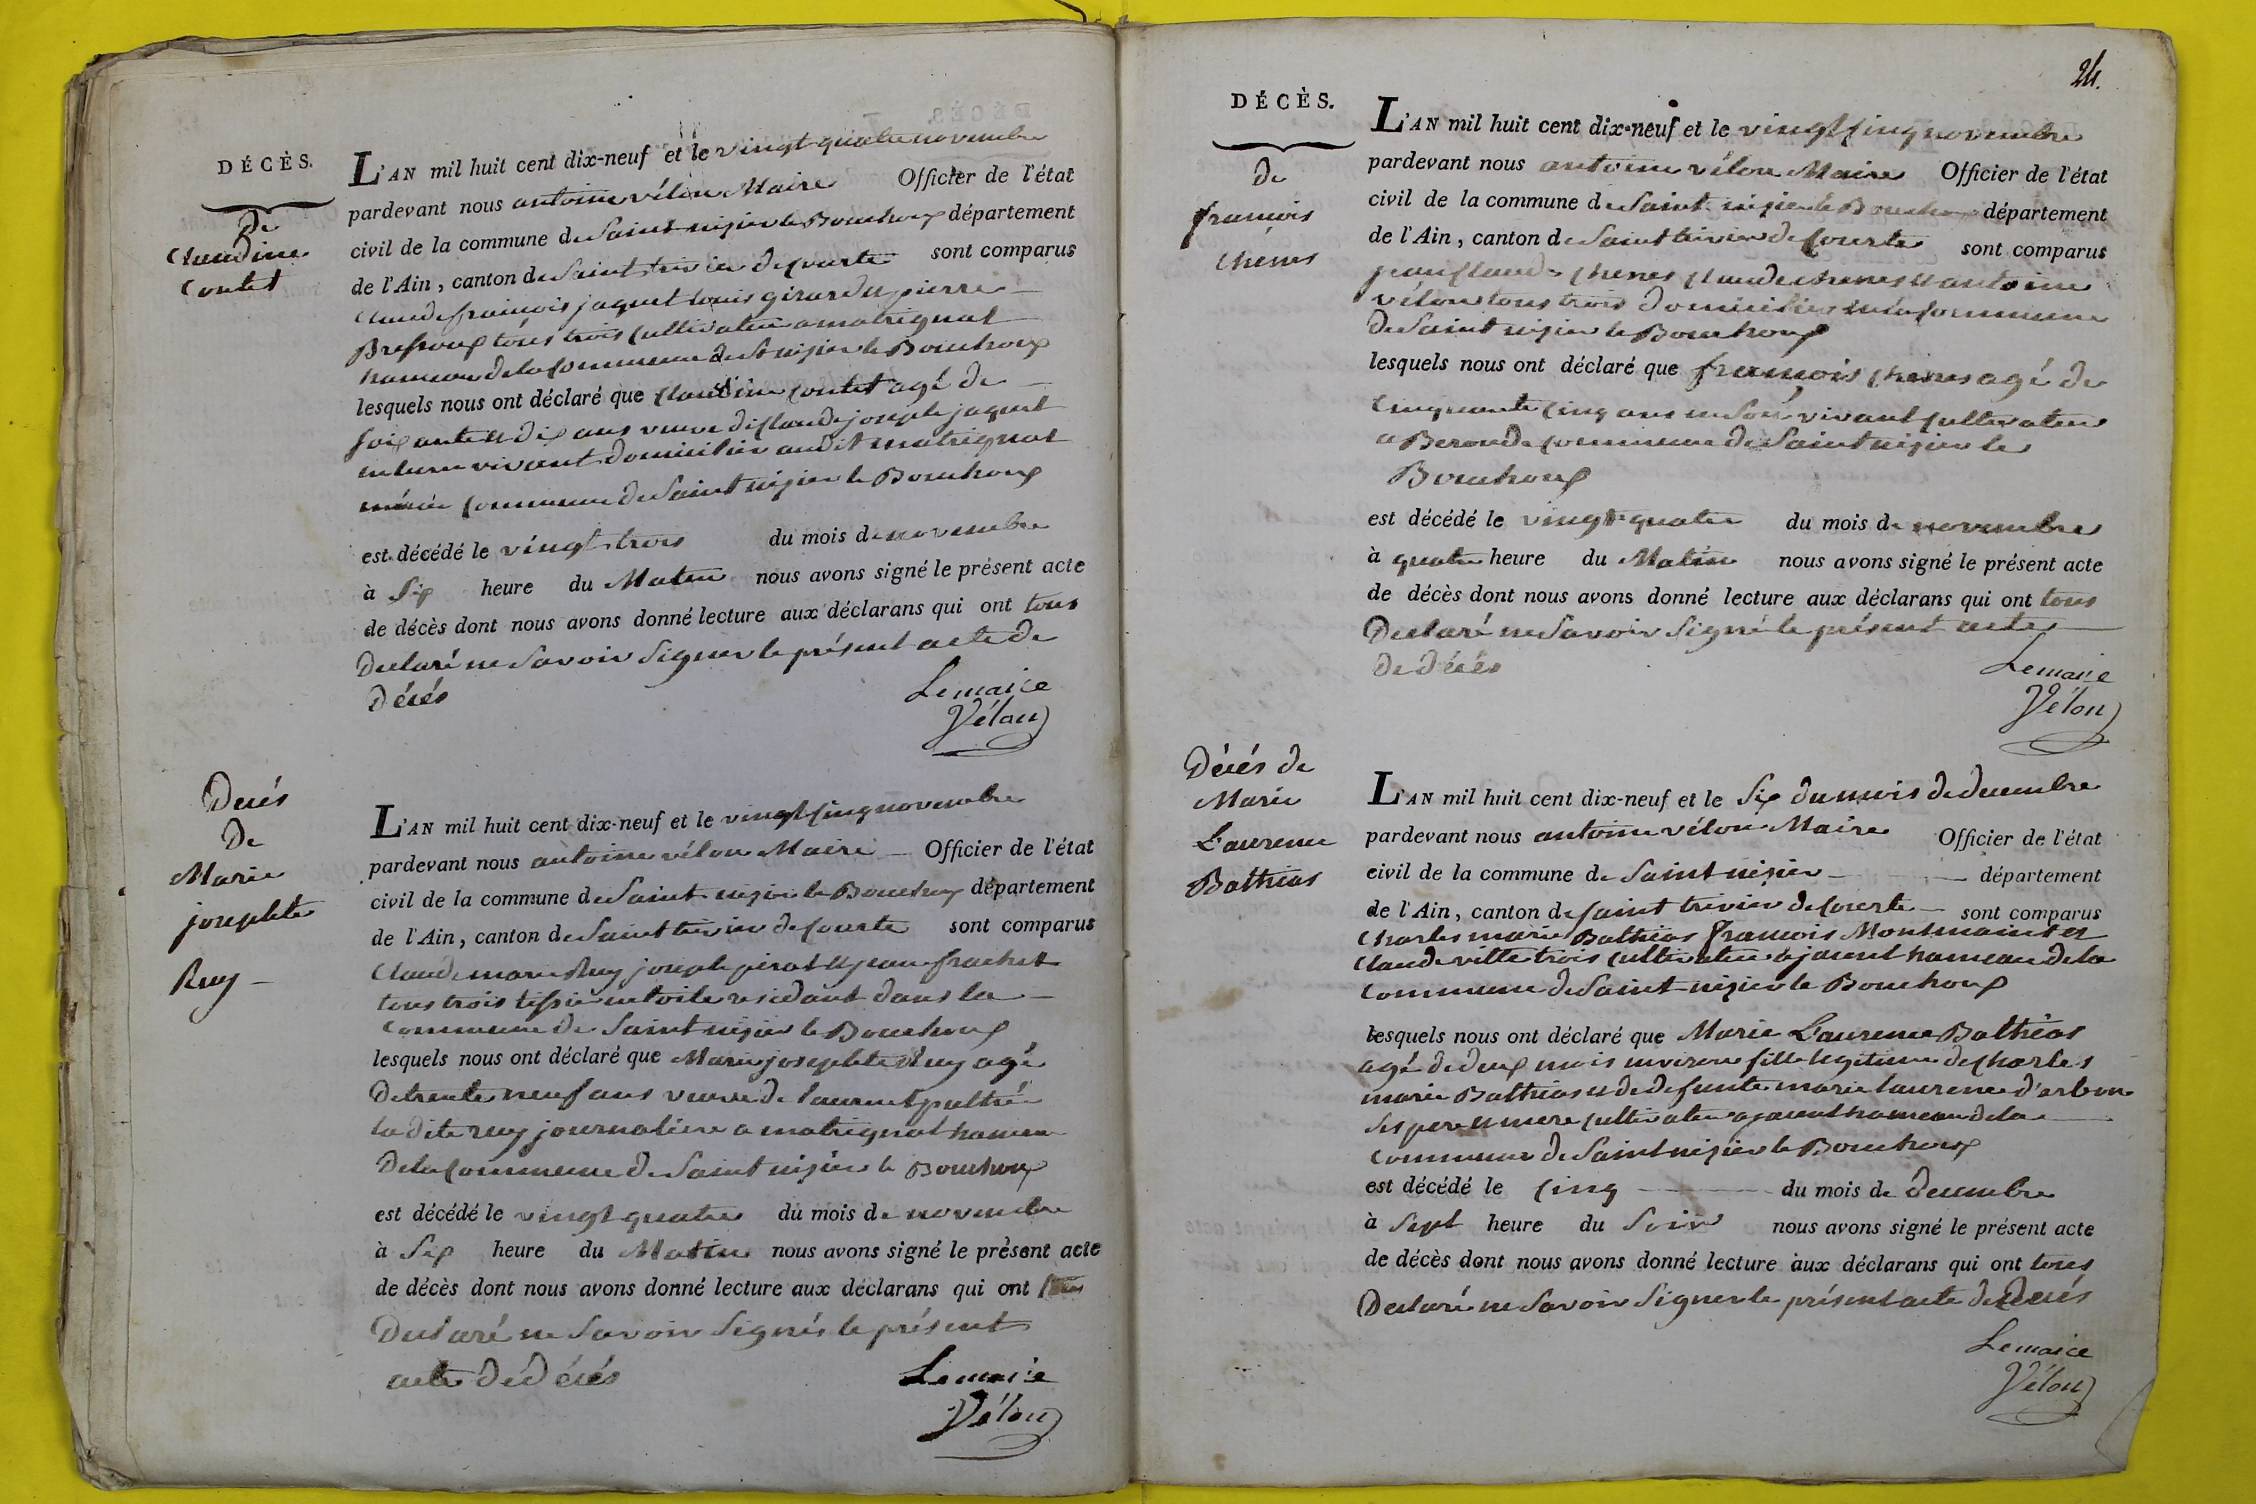 DÉCÈS.
De
Claudine
Contet
L'AN mil huit cent dix-neuf et le vingt quatre novembre
pardevant nous antoine vélon Maire Officier de l'état
civil de la commune de Saint nizier le Bouchoux département
de l'Ain, canton de Saint trivier de Courte sont comparus
Claude françois jaquet louis girardu pierre
Bressoux tous trois cultivateur a matrignat
hameau de la Commune de St nizier le Bouchoux
lesquels nous ont déclaré que Claudine Contet agé de
Soixante et dix ans veuve de Claude joseph jaquet
en leur vivant domicilier au dit matrignat
Commune de Saint nizier le Bouchoux
est décédé le vingt trois du mois de novembre
à Six heure du Matin nous avons signé le présent acte
de décès dont nous avons donné lecture aux déclarans qui ont tous
Declaré ne Savoir Signer le présent acte de
Décés
Lemaire
Vélon
Decés
De
Marie
josephte
Ruy
L'AN mil huit cent dix-neuf et le vingt cinq novembre
pardevant nous antoine vélon Maire Officier de l'état
civil de la commune de Saint nizier le Bouchoux département
de l'Ain, canton de Saint trivier de Courte sont comparus
Claude marie Ruy joseph pirat et jean frachet
tous trois tissier en toile residant dans la
Commune de Saint nizier le Bouchoux
lesquels nous ont déclaré que Marie josephte Ruy agé
De trente neuf ans veuve de laurent
la dite ruy journaliere a matrignat hameau
De la Commune de Saint nizier le Bouchoux
est décédé le vingt quatre du mois de novembre
à Six heure du Matin nous avons signé le présent acte
de décès dont nous avons donné lecture aux déclarans qui ont tous
Declaré ne Savoir Signés le présent
acte De décés
Lemaire
Vélon
24.
DÉCÈS.
de
françois
Chenes
L'AN mil huit cent dix-neuf et le vingt cinq novembre
pardevant nous antoine vélon Maire Officier de l'état
civil de la commune de Saint nizier le Bouchoux département
de l'Ain, canton de Saint trivier de Courte sont comparus
jean Claude Chenes Claude Chenes et antoine
vélon tous trois domicilier en la Commune
de Saint nizier le Bouchoux
lesquels nous ont déclaré que françois Chenes agé de
Cinquante Cinq ans en Son vivant Cultivateur
a Beronde Commune de Saint nizier le
Bouchoux
est décédé le vingt quatre du mois de novembre
à quatre heure du Matin nous avons signé le présent acte
de décès dont nous avons donné lecture aux déclarans qui ont tous
Declaré ne Savoir Signé le présent acte
De décés
Lemaire
Vélon
Décés de
Marie
Laurence
Bathias
L'AN mil huit cent dix-neuf et le Six du mois de decembre
pardevant nous antoine vélon Maire Officier de l'état
civil de la commune de Saint nizier département
de l'Ain, canton de Saint trivier de Courte sont comparus
Charles marie Bathias françois Montmain et
Claude ville trois cultivateur a jaunt hameau de la
Commune de Saint nizier le Bouchoux
lesquels nous ont déclaré que Marie Laurence Bathias
agé de deux mois environ fille legitime de Charles
marie Bathias et de defunte marie laurence d'arbon
Ses pere et mere cultivateur a jaunt hameau de la
Commune de Saint nizier le Bouchoux
est décédé le Cinq du mois de decembre
à Sept heure du Soir nous avons signé le présent acte
de décès dont nous avons donné lecture aux déclarans qui ont tous
Declaré ne Savoir Signer le présent acte de Decés
Lemaire
Vélon